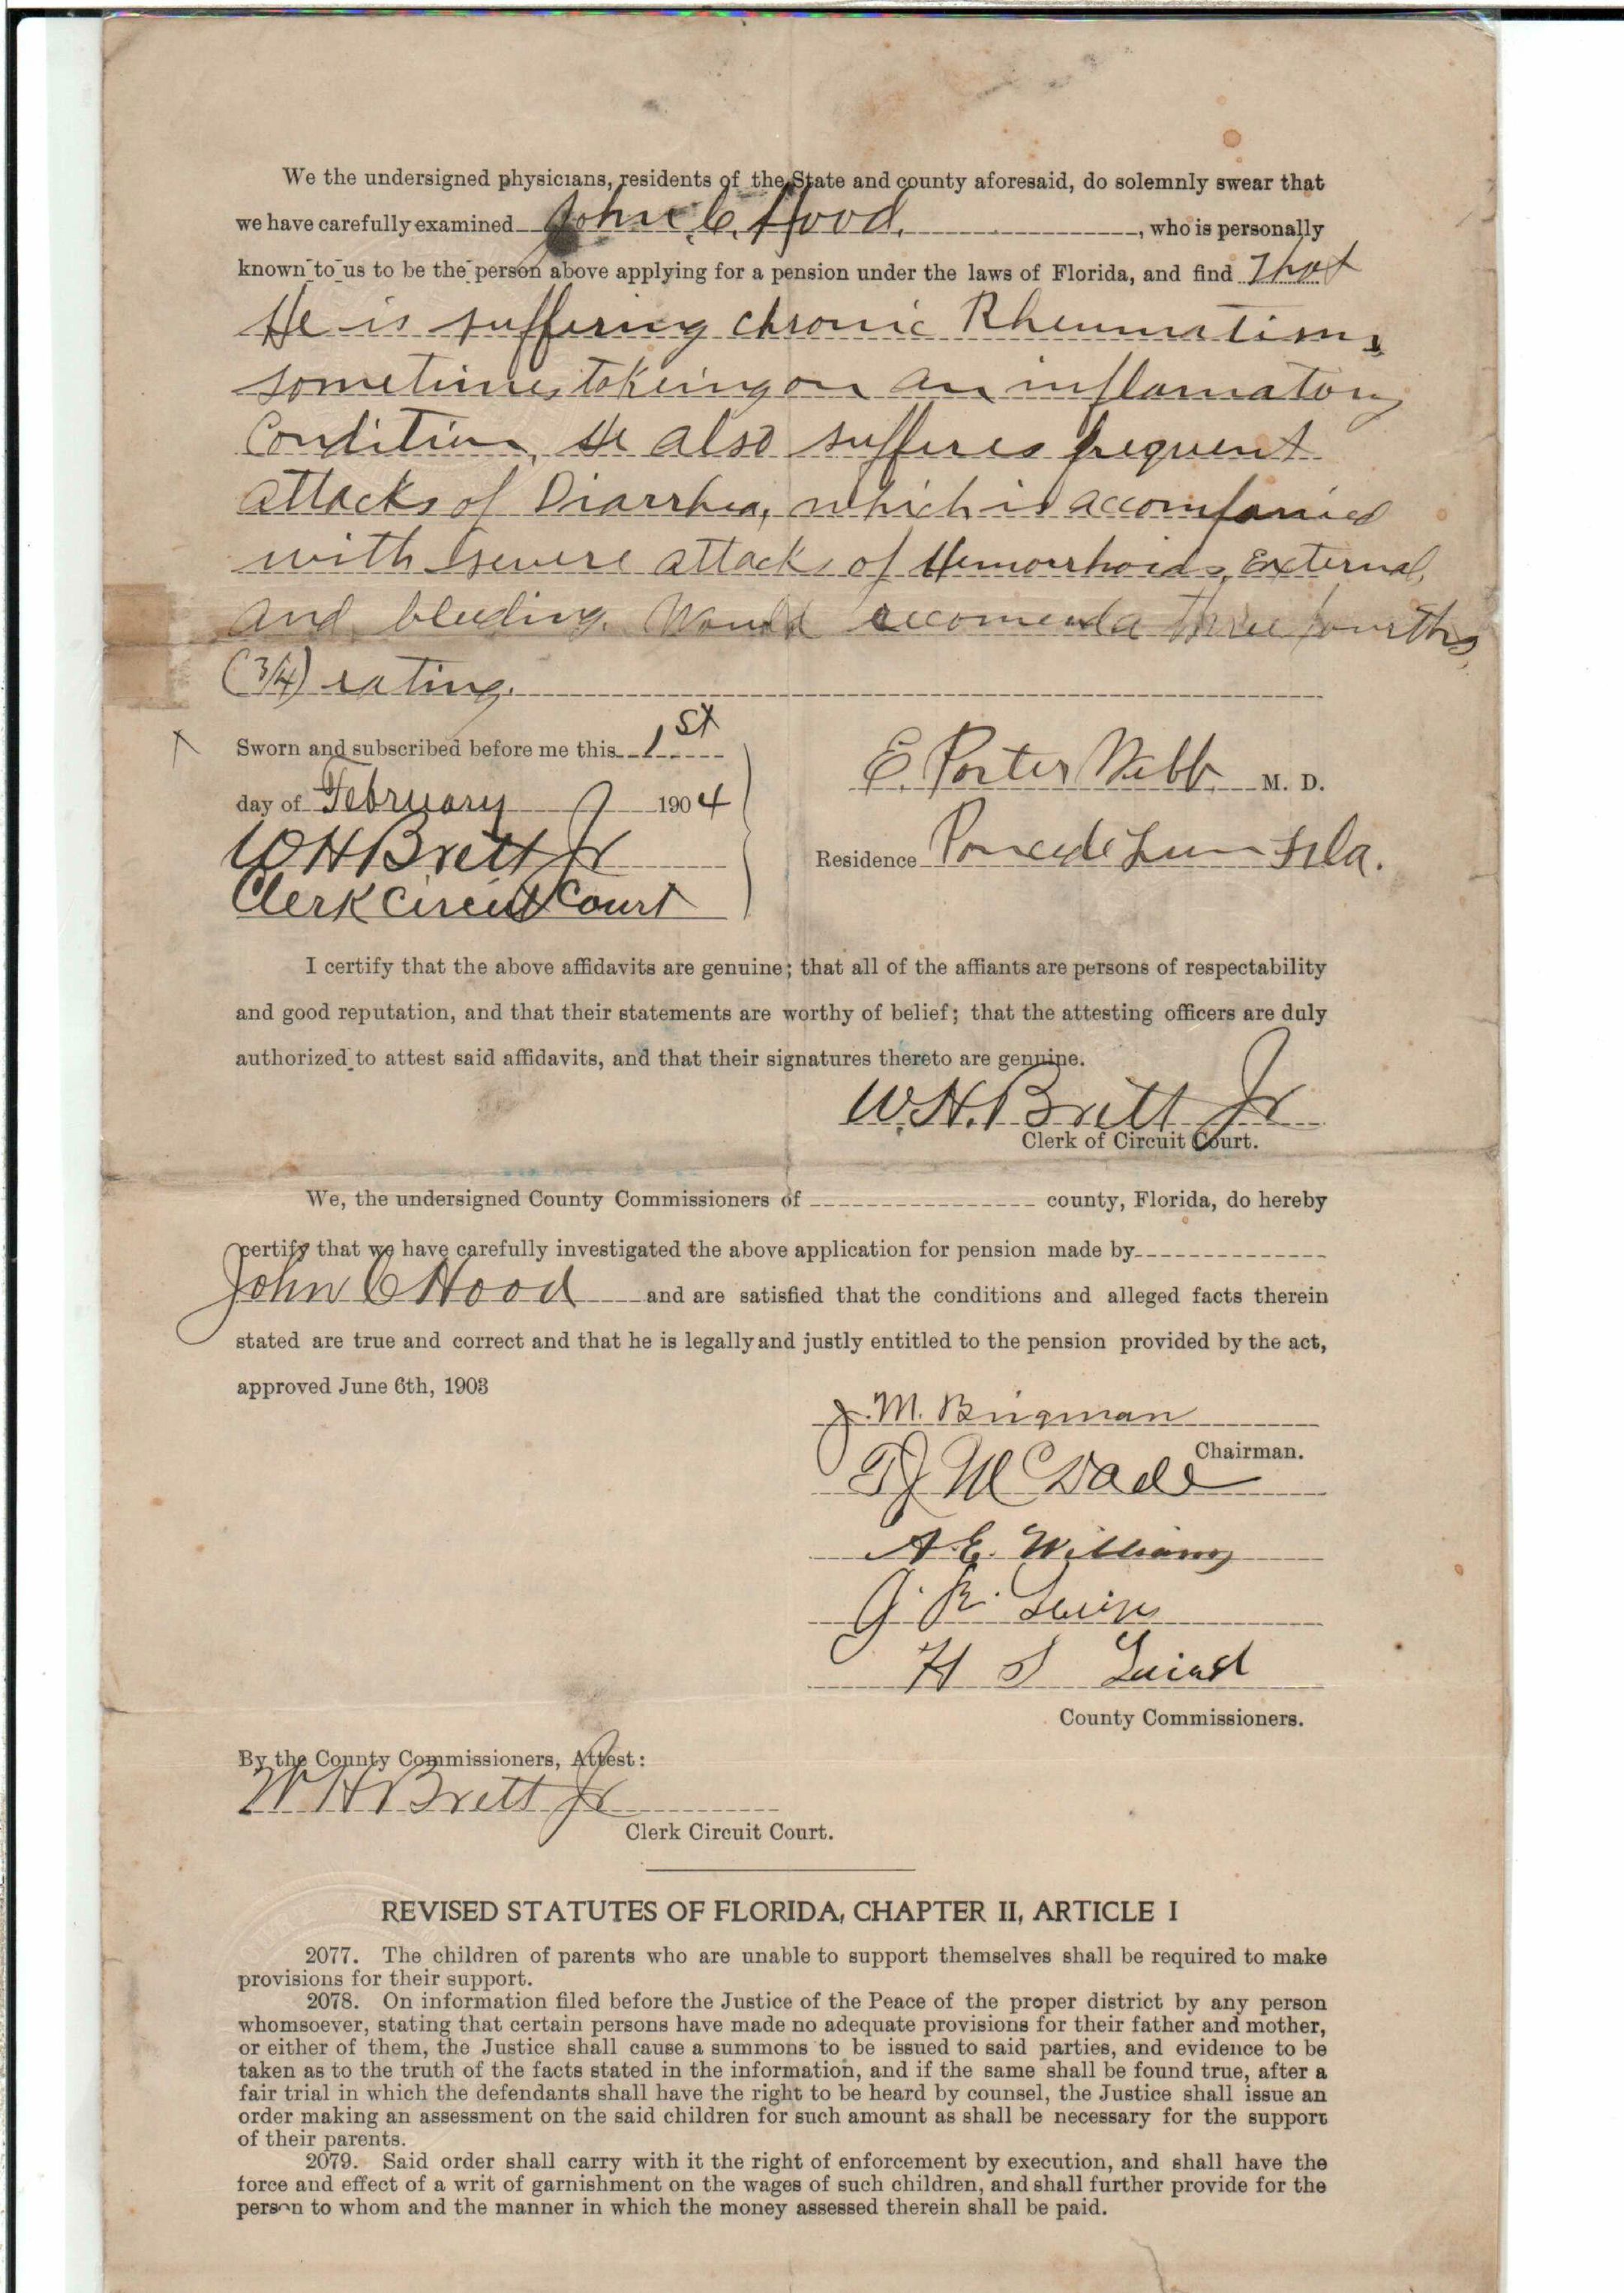 We the undersigned physicians, residents of the State and county aforesaid, do solemnly swear that
we have carefully examined John C. Hood, who is personally
known to us to be the person above applying for a pension under the laws of Florida, and find That
He is suffering chronic Rheumatism,
sometimes takeing on an inflamatory
Condition, He also sufferes frequent
attacks of Diarrhea, which is accompanied
with severe attacks of Hemorrhoids, External,
and bleeding. Would recomend a three fourths,
(3/4) rating.
Sworn and subscribed before me this 1st
day of February 1904
W H Brett Jr
Clerk Circuit Court
E. Porter Webb M. D.
Residence Ponce de Leon Fla.
I certify that the above affidavits are genuine; that all of the affiants are persons of respectability
and good reputation, and that their statements are worthy of belief; that the attesting officers are duly
authorized to attest said affidavits, and that their signatures thereto are genuine.
W. H. Brett Jr
Clerk of Circuit Court.
We, the undersigned County Commissioners of county, Florida, do hereby
certify that we have carefully investigated the above application for pension made by
John C Hood and are satisfied that the conditions and alleged facts therein
stated are true and correct and that he is legally and justly entitled to the pension provided by the act,
approved June 6th, 1903
J. M. Brigman
Chairman.
McDade
A. E. Williams
H S Laird
County Commissioners.
By the County Commissioners, Attest:
W H Brett Jr
Clerk Circuit Court.
REVISED STATUTES OF FLORIDA, CHAPTER II, ARTICLE I
2077. The children of parents who are unable to support themselves shall be required to make
provisions for their support.
2078. On information filed before the Justice of the Peace of the proper district by any person
whomsoever, stating that certain persons have made no adequate provisions for their father and mother,
or either of them, the Justice shall cause a summons to be issued to said parties, and evidence to be
taken as to the truth of the facts stated in the information, and if the same shall be found true, after a
fair trial in which the defendants shall have the right to be heard by counsel, the Justice shall issue an
order making an assessment on the said children for such amount as shall be necessary for the support
of their parents.
2079. Said order shall carry with it the right of enforcement by execution, and shall have the
force and effect of a writ of garnishment on the wages of such children, and shall further provide for the
person to whom and the manner in which the money assessed therein shall be paid.